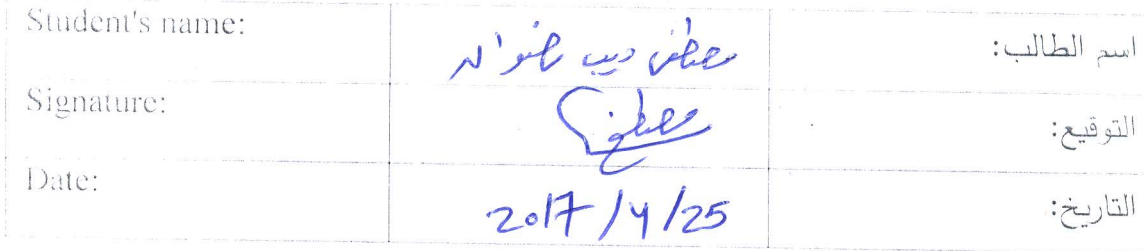 Student's name: مصطفى ديب رضوان اسم الطالب:
Signature: مصطفى التوقيع:
Date: 2017/4/25 التاريخ: